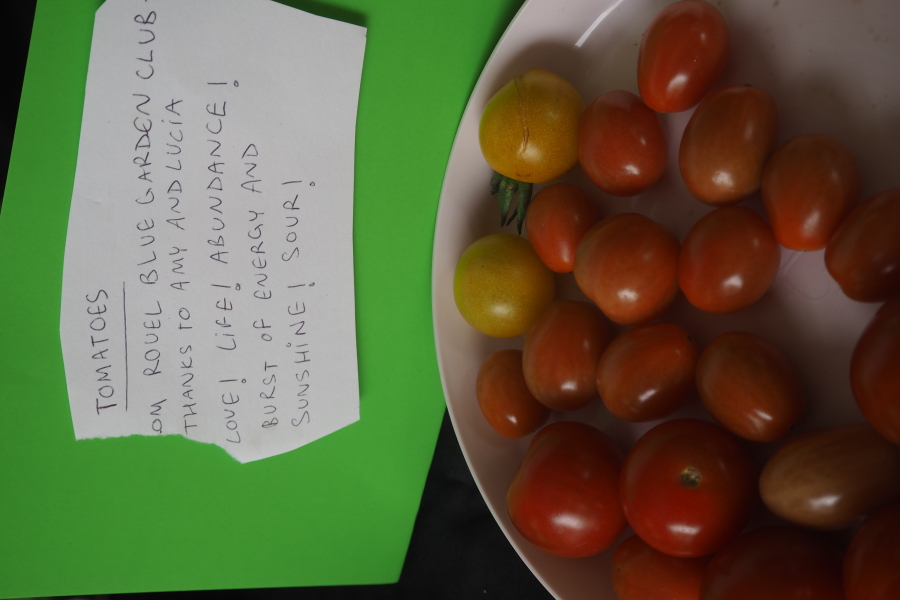 TOMATOES
OM ROUEL BLUE GARDEN CLUB.
THANKS TO AMY AND LUCIA
LOVE! LIFE! ABUNDANCE!
BURST OF ENERGY AND
SUNSHINE! SOUR!